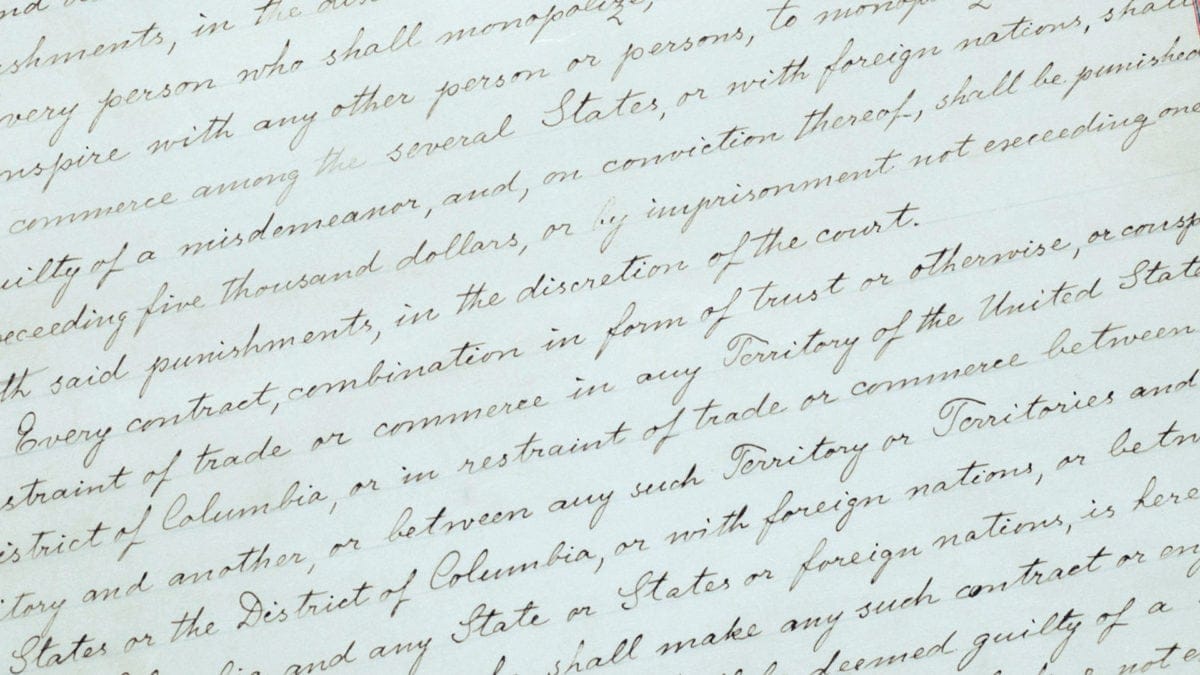 nd
shments, in the dis
very person who shall monopolize,
nspire with any other person or persons, to monop
commerce among the several States, or with foreign nations, shall
uilty of a misdemeanor, and, on conviction thereof, shall be punished
xceeding five thousand dollars, or by imprisonment not exceeding one
th said punishments, in the discretion of the court.
Every contract, combination in form of trust or otherwise, or consp
straint of trade or commerce in any Territory of the United Stat
istrict of Columbia, or in restraint of trade or commerce between
itory and another, or between any such Territory or Territories and
States or the District of Columbia, or with foreign nations, or betw
bia and any State or States or foreign nations, is here
shall make any such contract or en
deemed guilty of a
not e